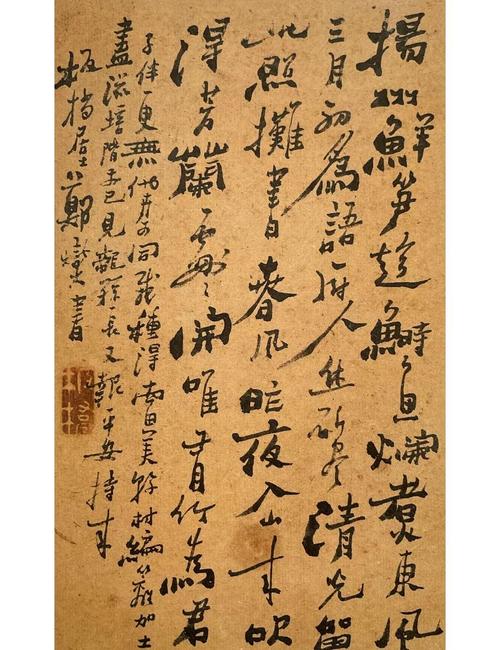 揚州鮮笋趂鰣魚爛煮東風
三月初為語厨人休斫尽清光留
此照攤書春風昨夜入山來吹
得芳蘭處處開唯有竹為君
子伴更無他卉可同栽種得南美材編籬加土
盡滋培階前已見龍孫長又報平安持來
板橋居士鄭燮書